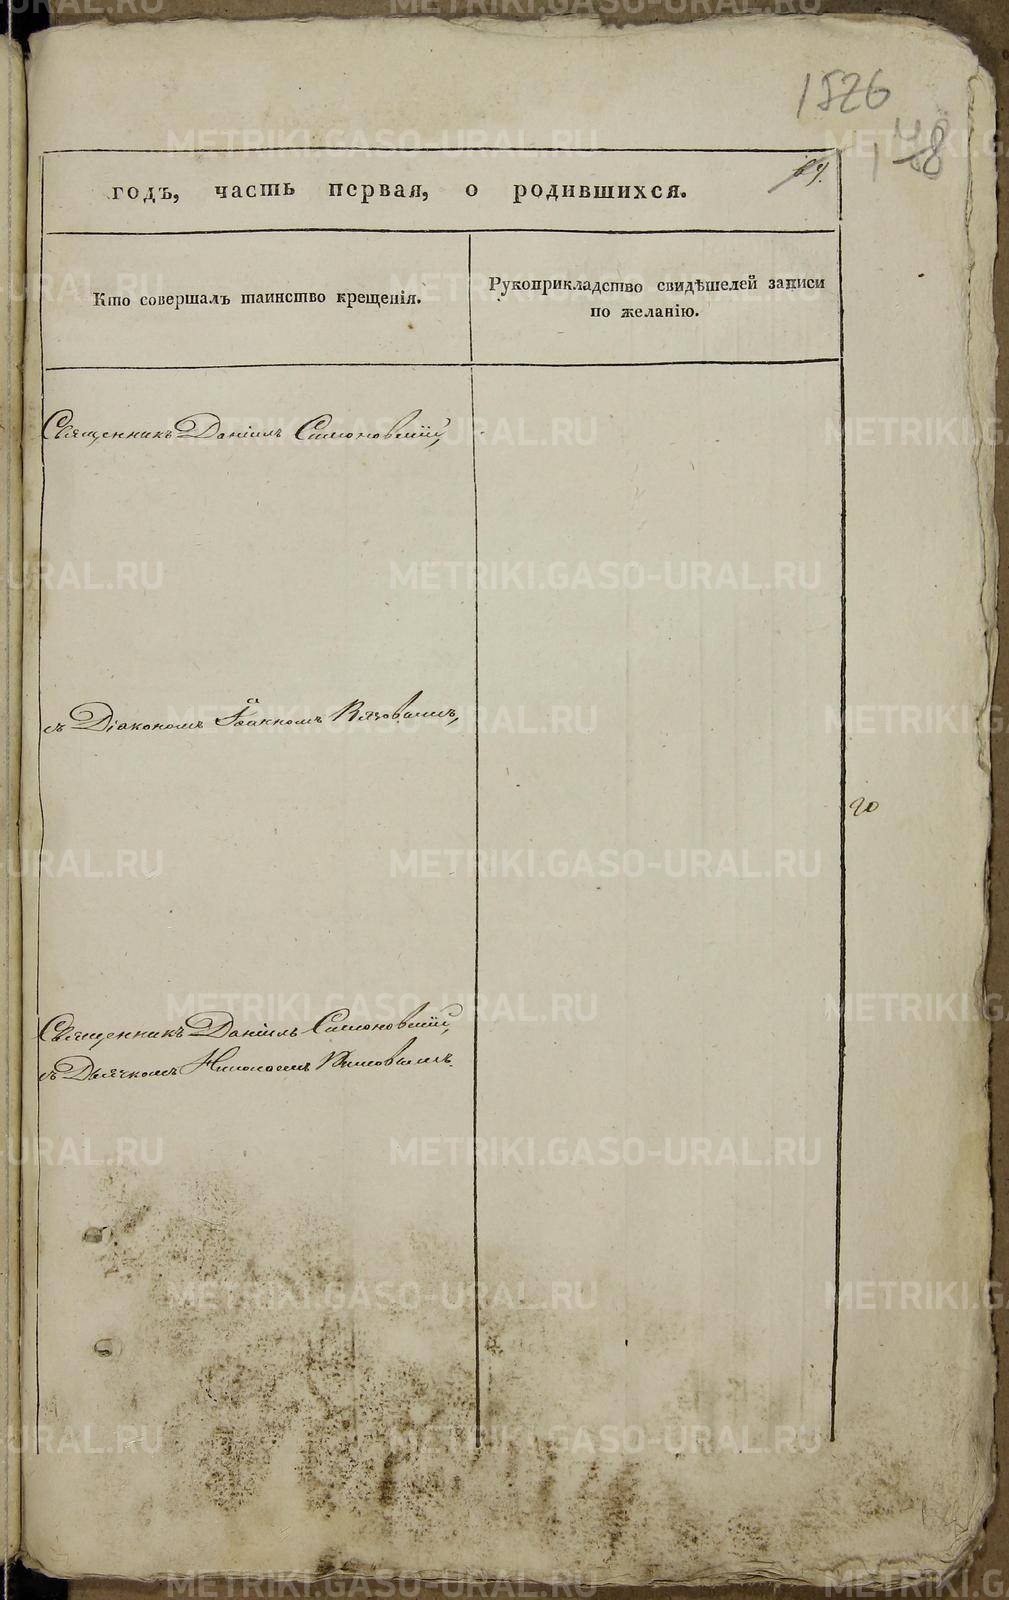 1526
148
89.
годъ, часть первая, о родившихся.
Кто совершалъ таинство крещенія.
Рукоприкладство свидѣтелей записи
по желанію.
Священникъ Даніилъ Симоновскій,
съ Діакономъ Іоанномъ Вязовымъ,
20
Священникъ Даніилъ Симоновскій,
съ Дьячкомъ Николаемъ
METRIKI.GASO-URAL.RU